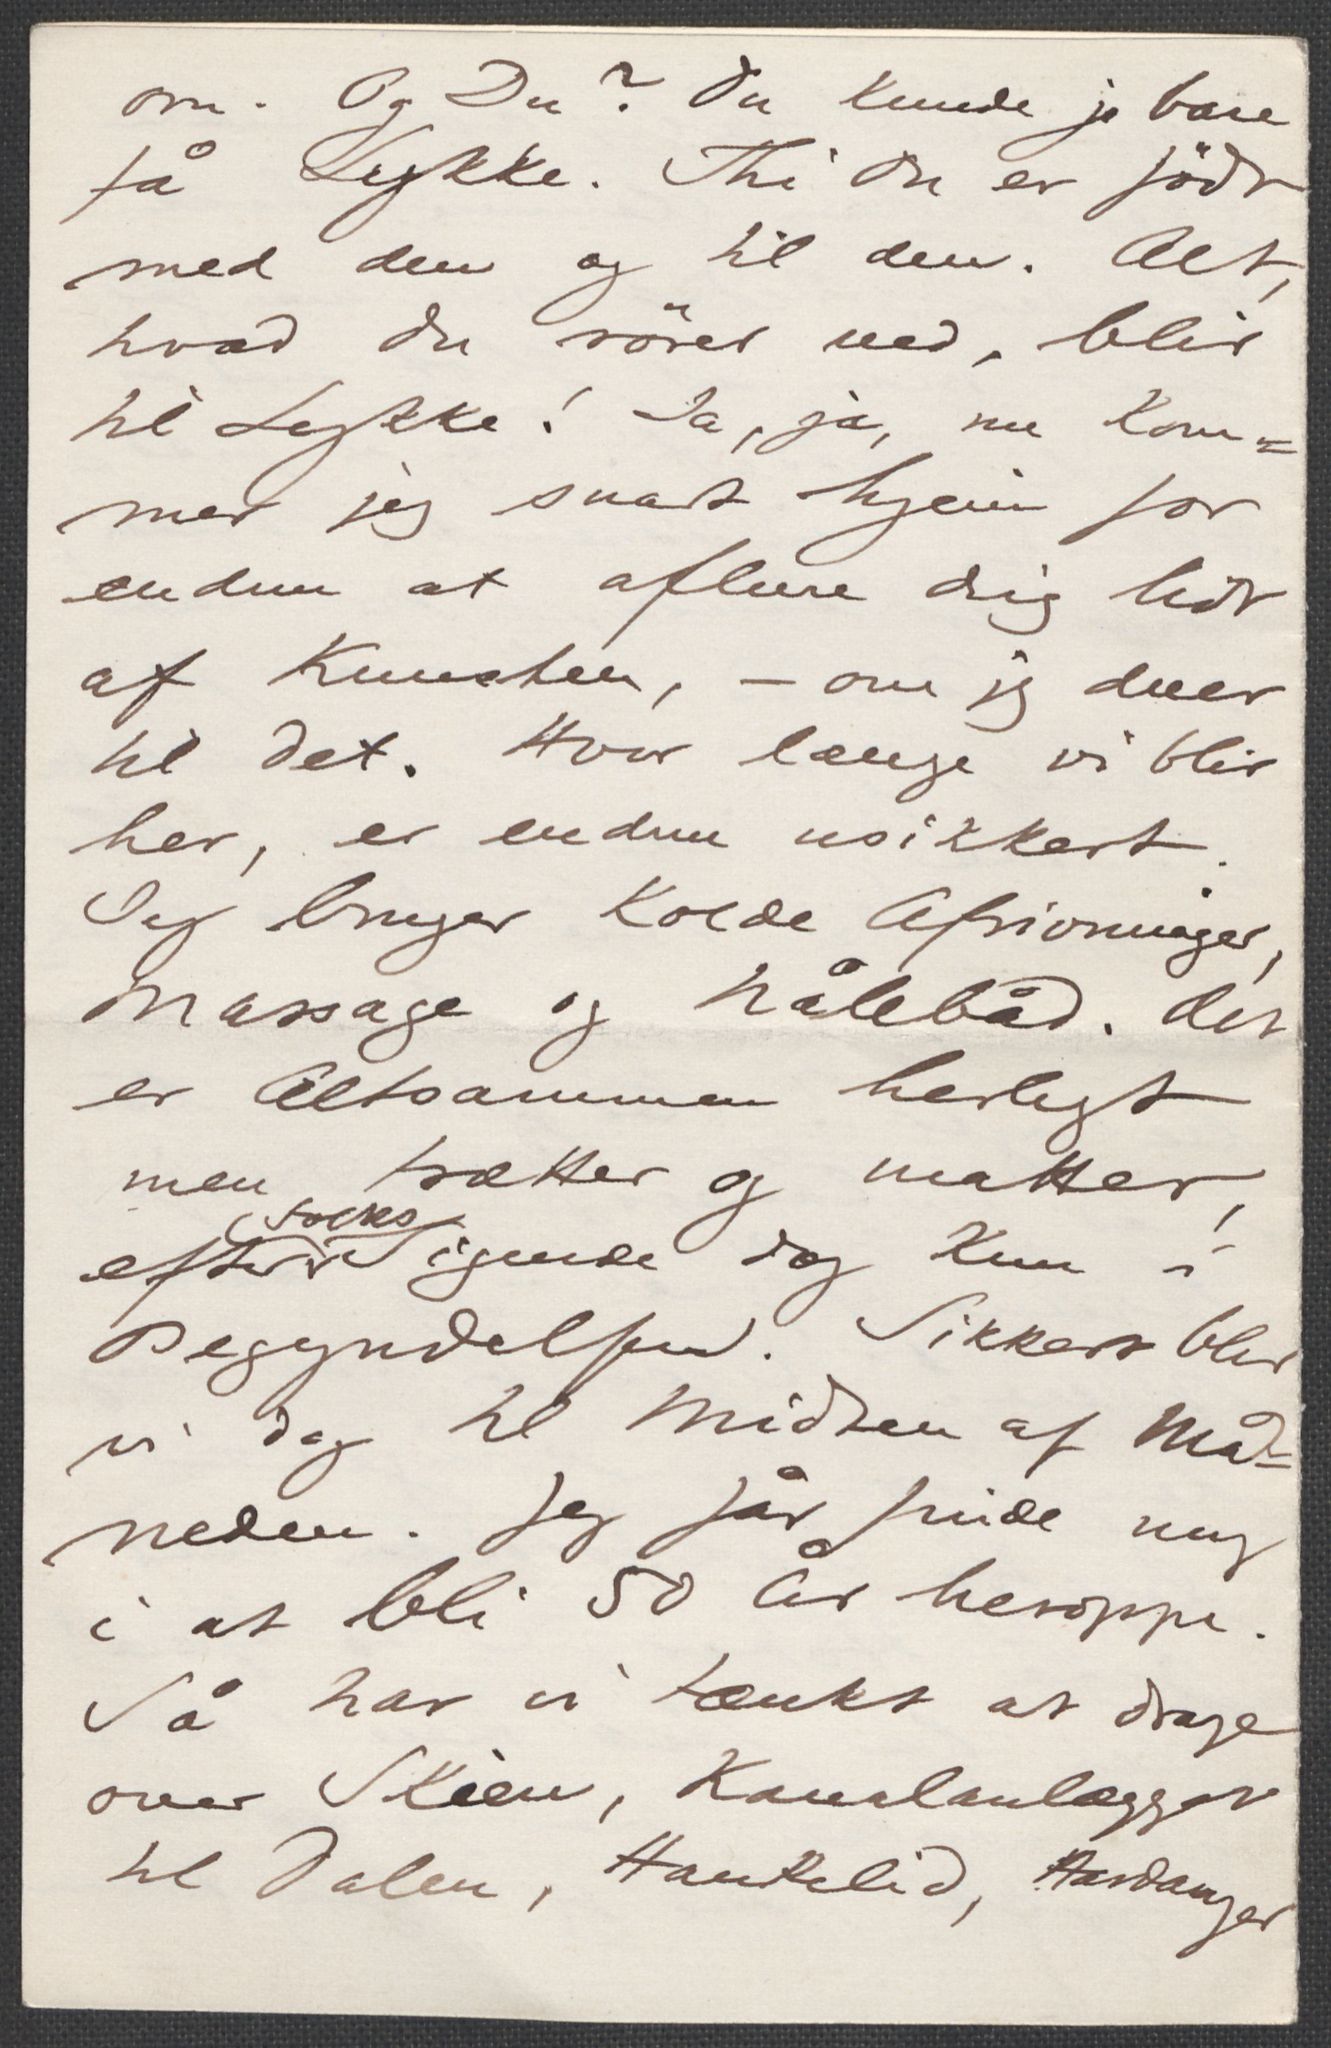 om. Og Du? Du kunde jo bare
få Lykke. Thi Du er födt
med den og til den. Alt,
hvad du rörer ved, blir
til Lykke! Ja, ja, nu kom=
mer jeg snart hjem for
endnu at aflure dig lidt
af Kunsten, – om jeg duer
til det. Hvor længe vi blir
her, er endnu usikkert.
Jeg bruger kolde Afrivninger,
Massage og Nålebåd. Det
er Altsammen herligt
men trætter og matter,
efter Sigende dog kun i
Begyndelsen. Sikkert blir
vi dog til Midten af Må=
neden. Jeg får finde mig
i at bli 50 År heroppe.
Så har vi tænkt at drage
over Skien, Kanalanlægget
til Dalen, Haukelid, Hardanger